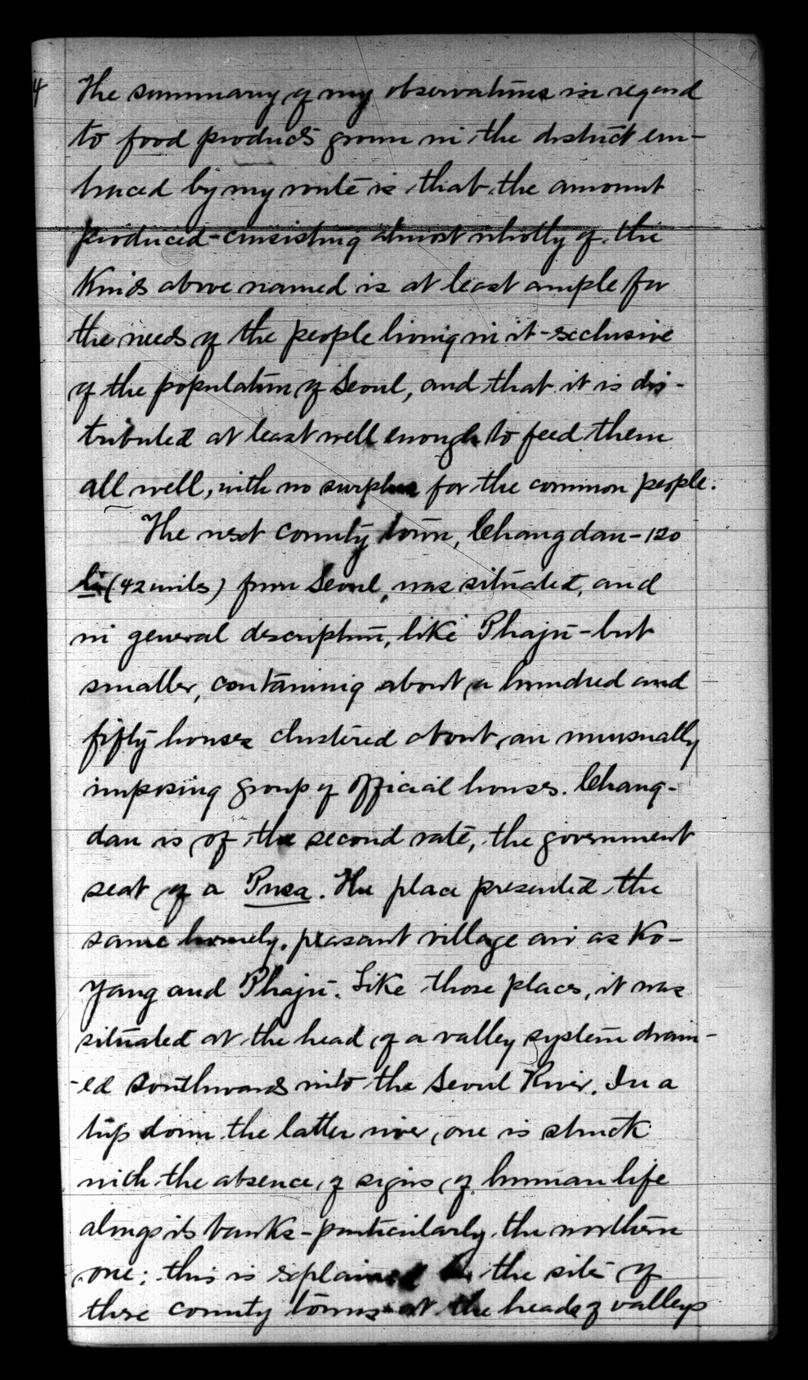 4
The summary of my observations in regard
to food products grown in the district em-
braced by my route is that the amount
produced - consisting almost wholly of the
kinds above named is at least ample for
the needs of the people living in it - exclusive
of the population of Seoul, and that it is dis-
tributed at least well enough to feed them
all well, with no surplus for the common people.
The next county town, Changdan - 120
li (42 miles) from Seoul, was situated, and
in general description, like Phaju - but
smaller, containing about a hundred and
fifty houses clustered about an unusually
imposing group of official houses. Chang-
dan is of the second rate, the government
seat of a Pusa. The place presented the
same homely, peasant village air as Ko-
yang and Phaju. Like those places, it was
situated at the head of a valley system drain-
-ed southwards into the Seoul River. In a
trip down the latter river, one is struck
with the absence of signs of human life
along its banks - particularly the northern
one: this is explained by the site of
these county towns at the heads of valleys